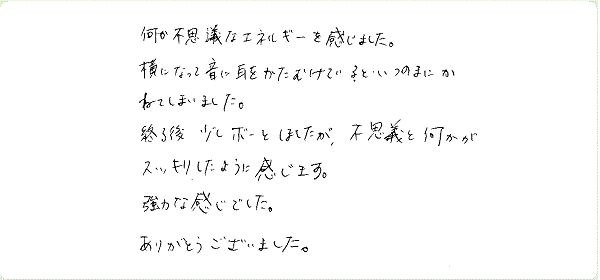 何か不思議なエネルギーを感じました。
横になって音に耳をかたむけているといつのまにか
ねてしまいました。
終る後 少しボーとしましたが、不思義と何かが
スッキリしたように感じます。
強力な感じでした。
ありがとうございました。